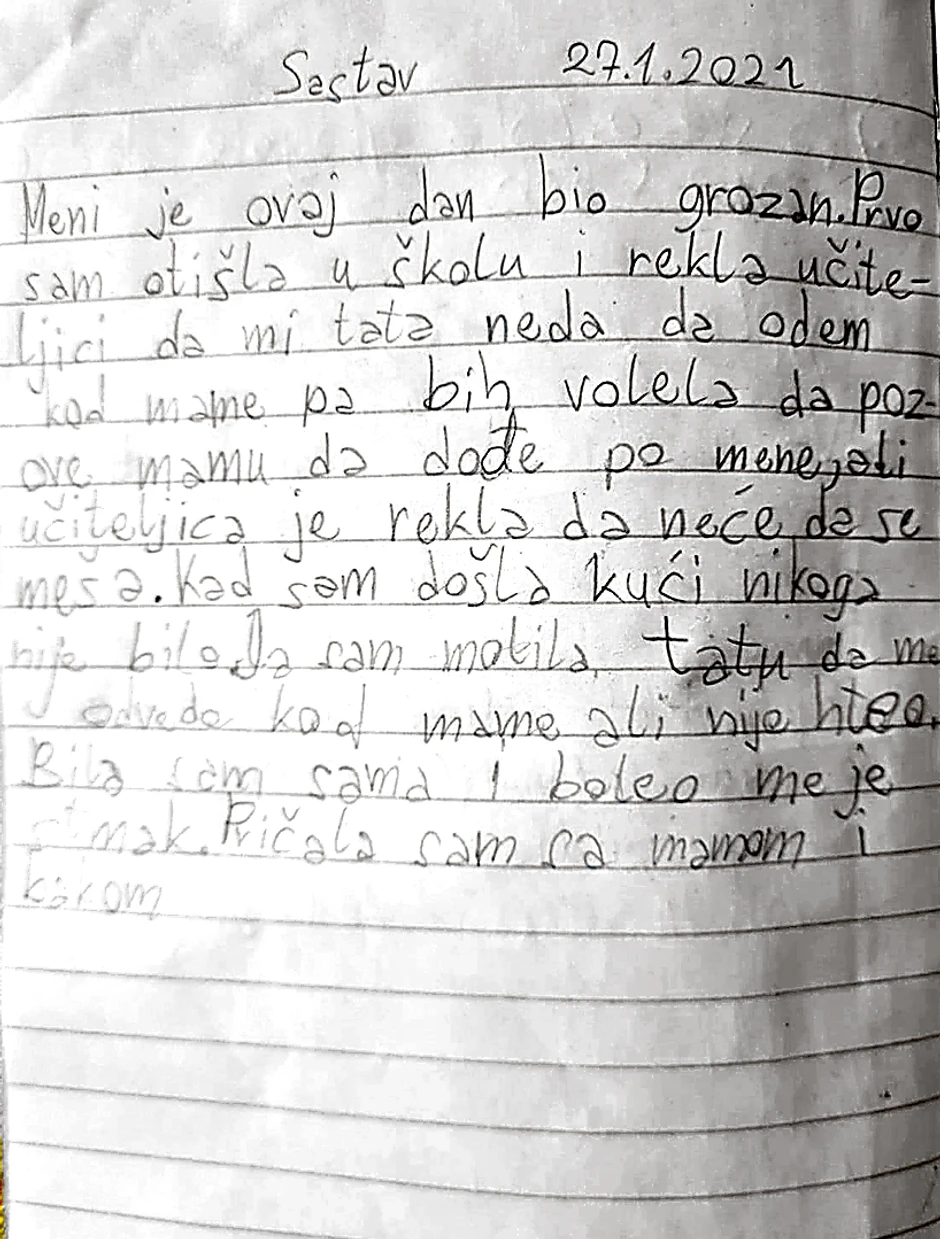 Sastav 27.1.2021
Meni je ovaj dan bio grozan. Prvo
sam otišla u školu i rekla učite-
ljici da mi tata neda da odem
kod mame pa bih volela da poz-
ove mamu da dođe po mene, ali
učiteljica je rekla da neće da se
meša. Kad sam došla kući nikoga
nije bilo. Ja sam molila tatu da me
odvede kod mame ali nije hteo.
Bila sam sama i boleo me je
stmak. Pričala sam sa mamom i
bakom